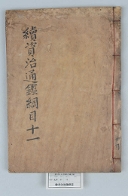 續資治通鑑綱目十一